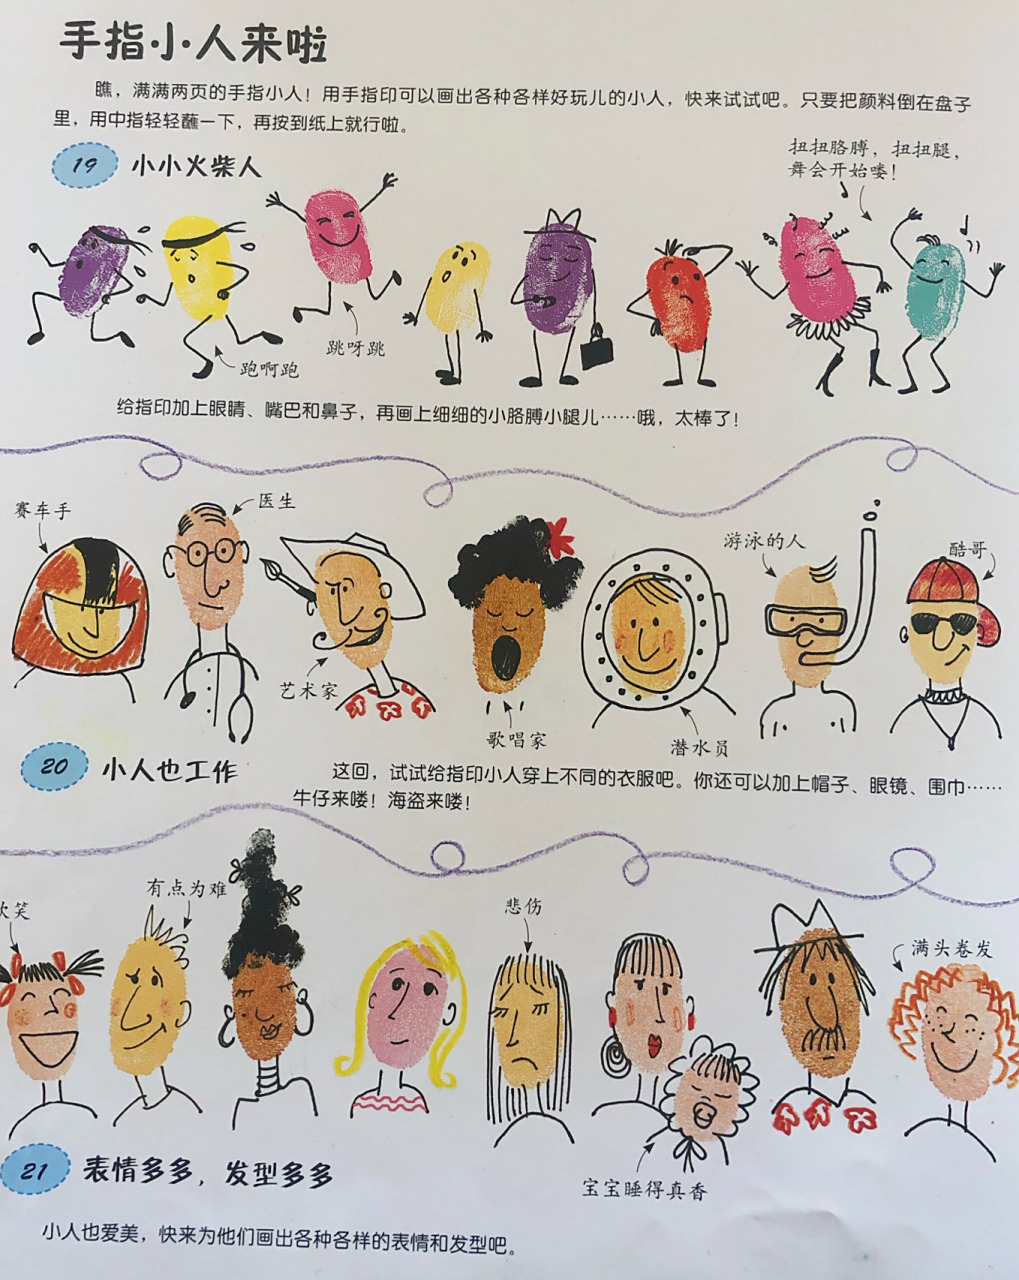 手指小人来啦
瞧，满满两页的手指小人！用手指印可以画出各种各样好玩儿的小人，快来试试吧。只要把颜料倒在盘子
里，用中指轻轻蘸一下，再按到纸上就行啦。
19 小小火柴人
扭扭胳膊，扭扭腿，
舞会开始喽！
跳呀跳
跑啊跑
给指印加上眼睛、嘴巴和鼻子，再画上细细的小胳膊小腿儿……哦，太棒了！
赛车手
医生
艺术家
歌唱家
潜水员
游泳的人
酷哥
20 小人也工作
这回，试试给指印小人穿上不同的衣服吧。你还可以加上帽子、眼镜、围巾……
牛仔来喽！海盗来喽！
欢笑
有点为难
悲伤
满头卷发
宝宝睡得真香
21 表情多多，发型多多
小人也爱美，快来为他们画出各种各样的表情和发型吧。